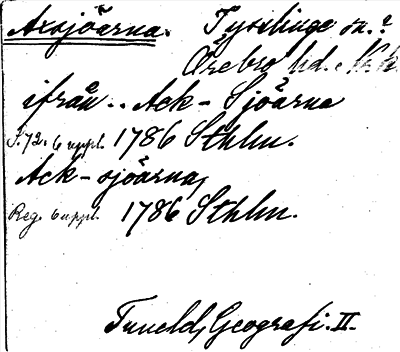 Axsjöarna. Tysslinge sn.?
Örebro hd. Nke.
ifrån.. Ack-Sjöarne
S.72. 6 uppl. 1786 Sthlm.
Ack-sjöarna,
Reg. 6 uppl. 1786 Sthlm.
Tuneld, Geografi. II.